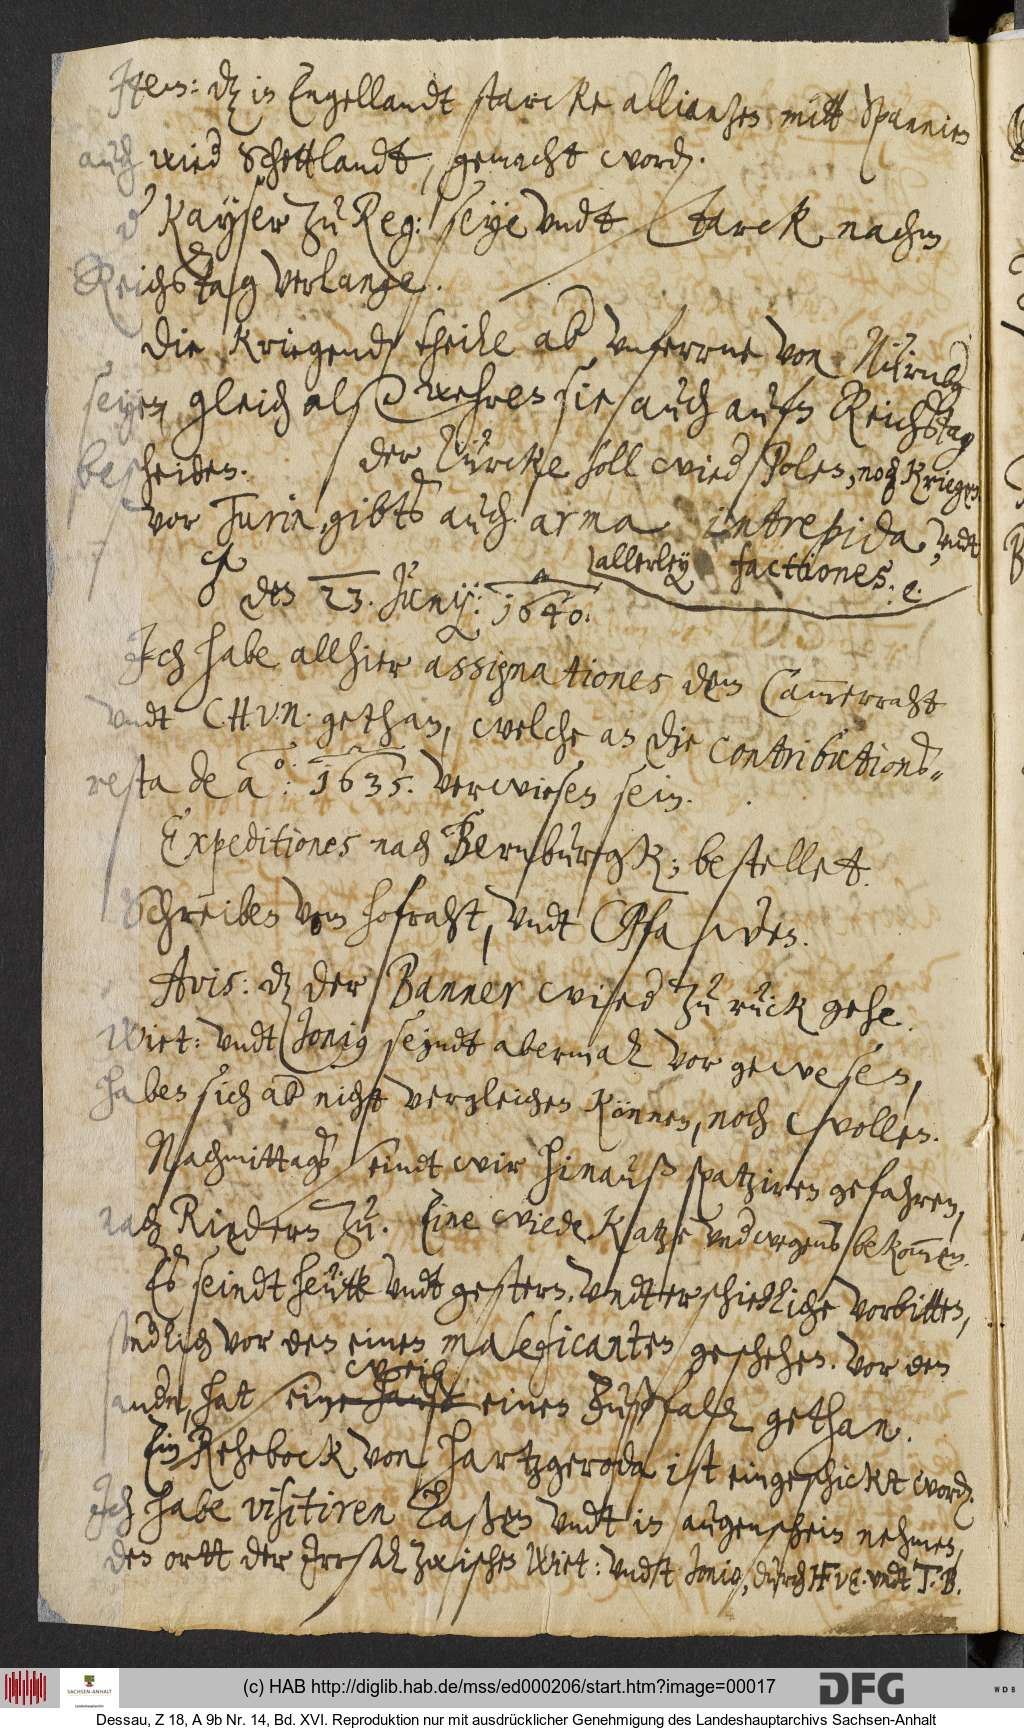 Item: dz in Engellandt starcke allianzen mitt Spannien
auch wied Schottlandt, gemacht word.
d Kayser zu Reg: seye vndt starck nachm
Reichstag verlange.
Die Kriegend theile ab vnferrne von Nürnbg
seyen gleich alß wehren sie auch aufn Reichstag
bescheiden. der Türcke soll wied Polen, noch kriegen
vor Turin gibts auch arma intrepida, vndt
allerley factiones. e.
den 23. Juny: 1640.
Ich habe allhier assignationes dem Cam̅erraht
vndt C.H.v.N. gethan, welche an die contributions-
resta de ao: 1635. verwiesen sein.
Expeditiones nach Bernburgk; bestellet.
Schreiben vom hofraht, vndt Pfaw den.
Avis: dz der Banner wied zu rück gehe.
Wiet: vndt Jonig seindt abermalz vor gewesen,
haben sich ab nicht vergleichen können, noch wollen.
Nachmittags seindt wir hinauß spatziren gefahren,
nach Riedern zu. Eine wilde Katze vndwegens bekom̅en.
Es seindt heütte vndt gestern. vndterschiedliche vorbitten,
sendlich vor den einen maleficanten geschehen. vor den
weib
andn, hat eine einen Fußfalz gethan.
Ein Rehebock von Hartzgeroda ist eingeschickt word.
Ich habe visitiren laßen vndt in augenschein nehmen,
den ortt der Irrsalz zwischen Wiet: vndt Jonig, durch H v E. vndt T. B.
(c) HAB http://diglib.hab.de/mss/ed000206/start.htm?image=00017
SACHSEN-ANHALT
DFG
WDB
Dessau, Z 18, A 9b Nr. 14, Bd. XVI. Reproduktion nur mit ausdrücklicher Genehmigung des Landeshauptarchivs Sachsen-Anhalt